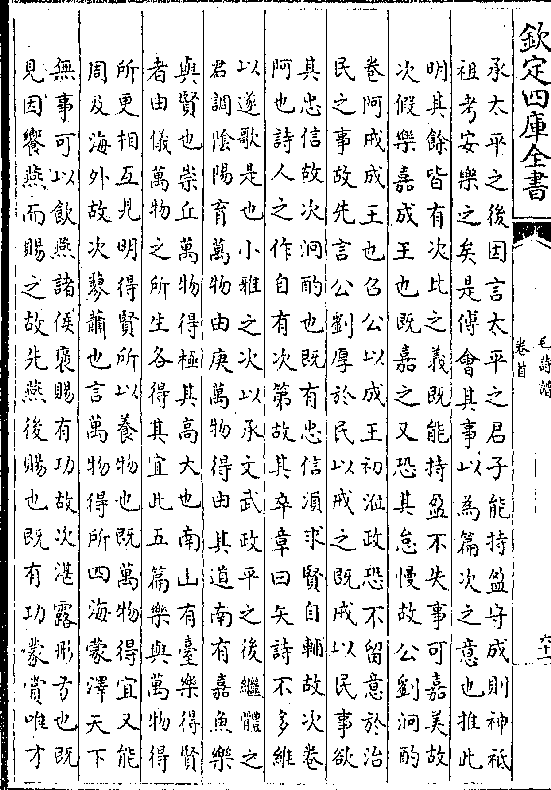 欽定四庫全書
毛詩譜
卷首
六十一
承太平之後因言太平之君子能持盈守成則神祇
祖考安樂之矣是傅會其事以為篇次之意也推此
明其餘皆有次比之義既能持盈不失事可嘉美故
次假樂嘉成王也既嘉之又恐其怠慢故公劉泂酌
卷阿戒成王也召公以成王初涖政恐不留意於治
民之事故先言公劉厚於民以戒之既戒以民事欲
其忠信故次泂酌也既有忠信須求賢自輔故次卷
阿也詩人之作自有次第故其卒章曰矢詩不多維
以遂歌是也小雅之次以承文武政平之後繼體之
君調陰陽育萬物由庚萬物得由其道南有嘉魚樂
與賢也崇丘萬物得極其高大也南山有臺樂得賢
者由儀萬物之所生各得其宜此五篇樂與萬物得
所更相互見明得賢所以養物也既萬物得宜又能
周及海外故次蓼蕭也言萬物得所四海蒙澤天下
無事可以飲燕諸侯褒賜有功故次湛露彤弓也既
見因饗燕而賜之故先燕後賜也既有功蒙賞唯才